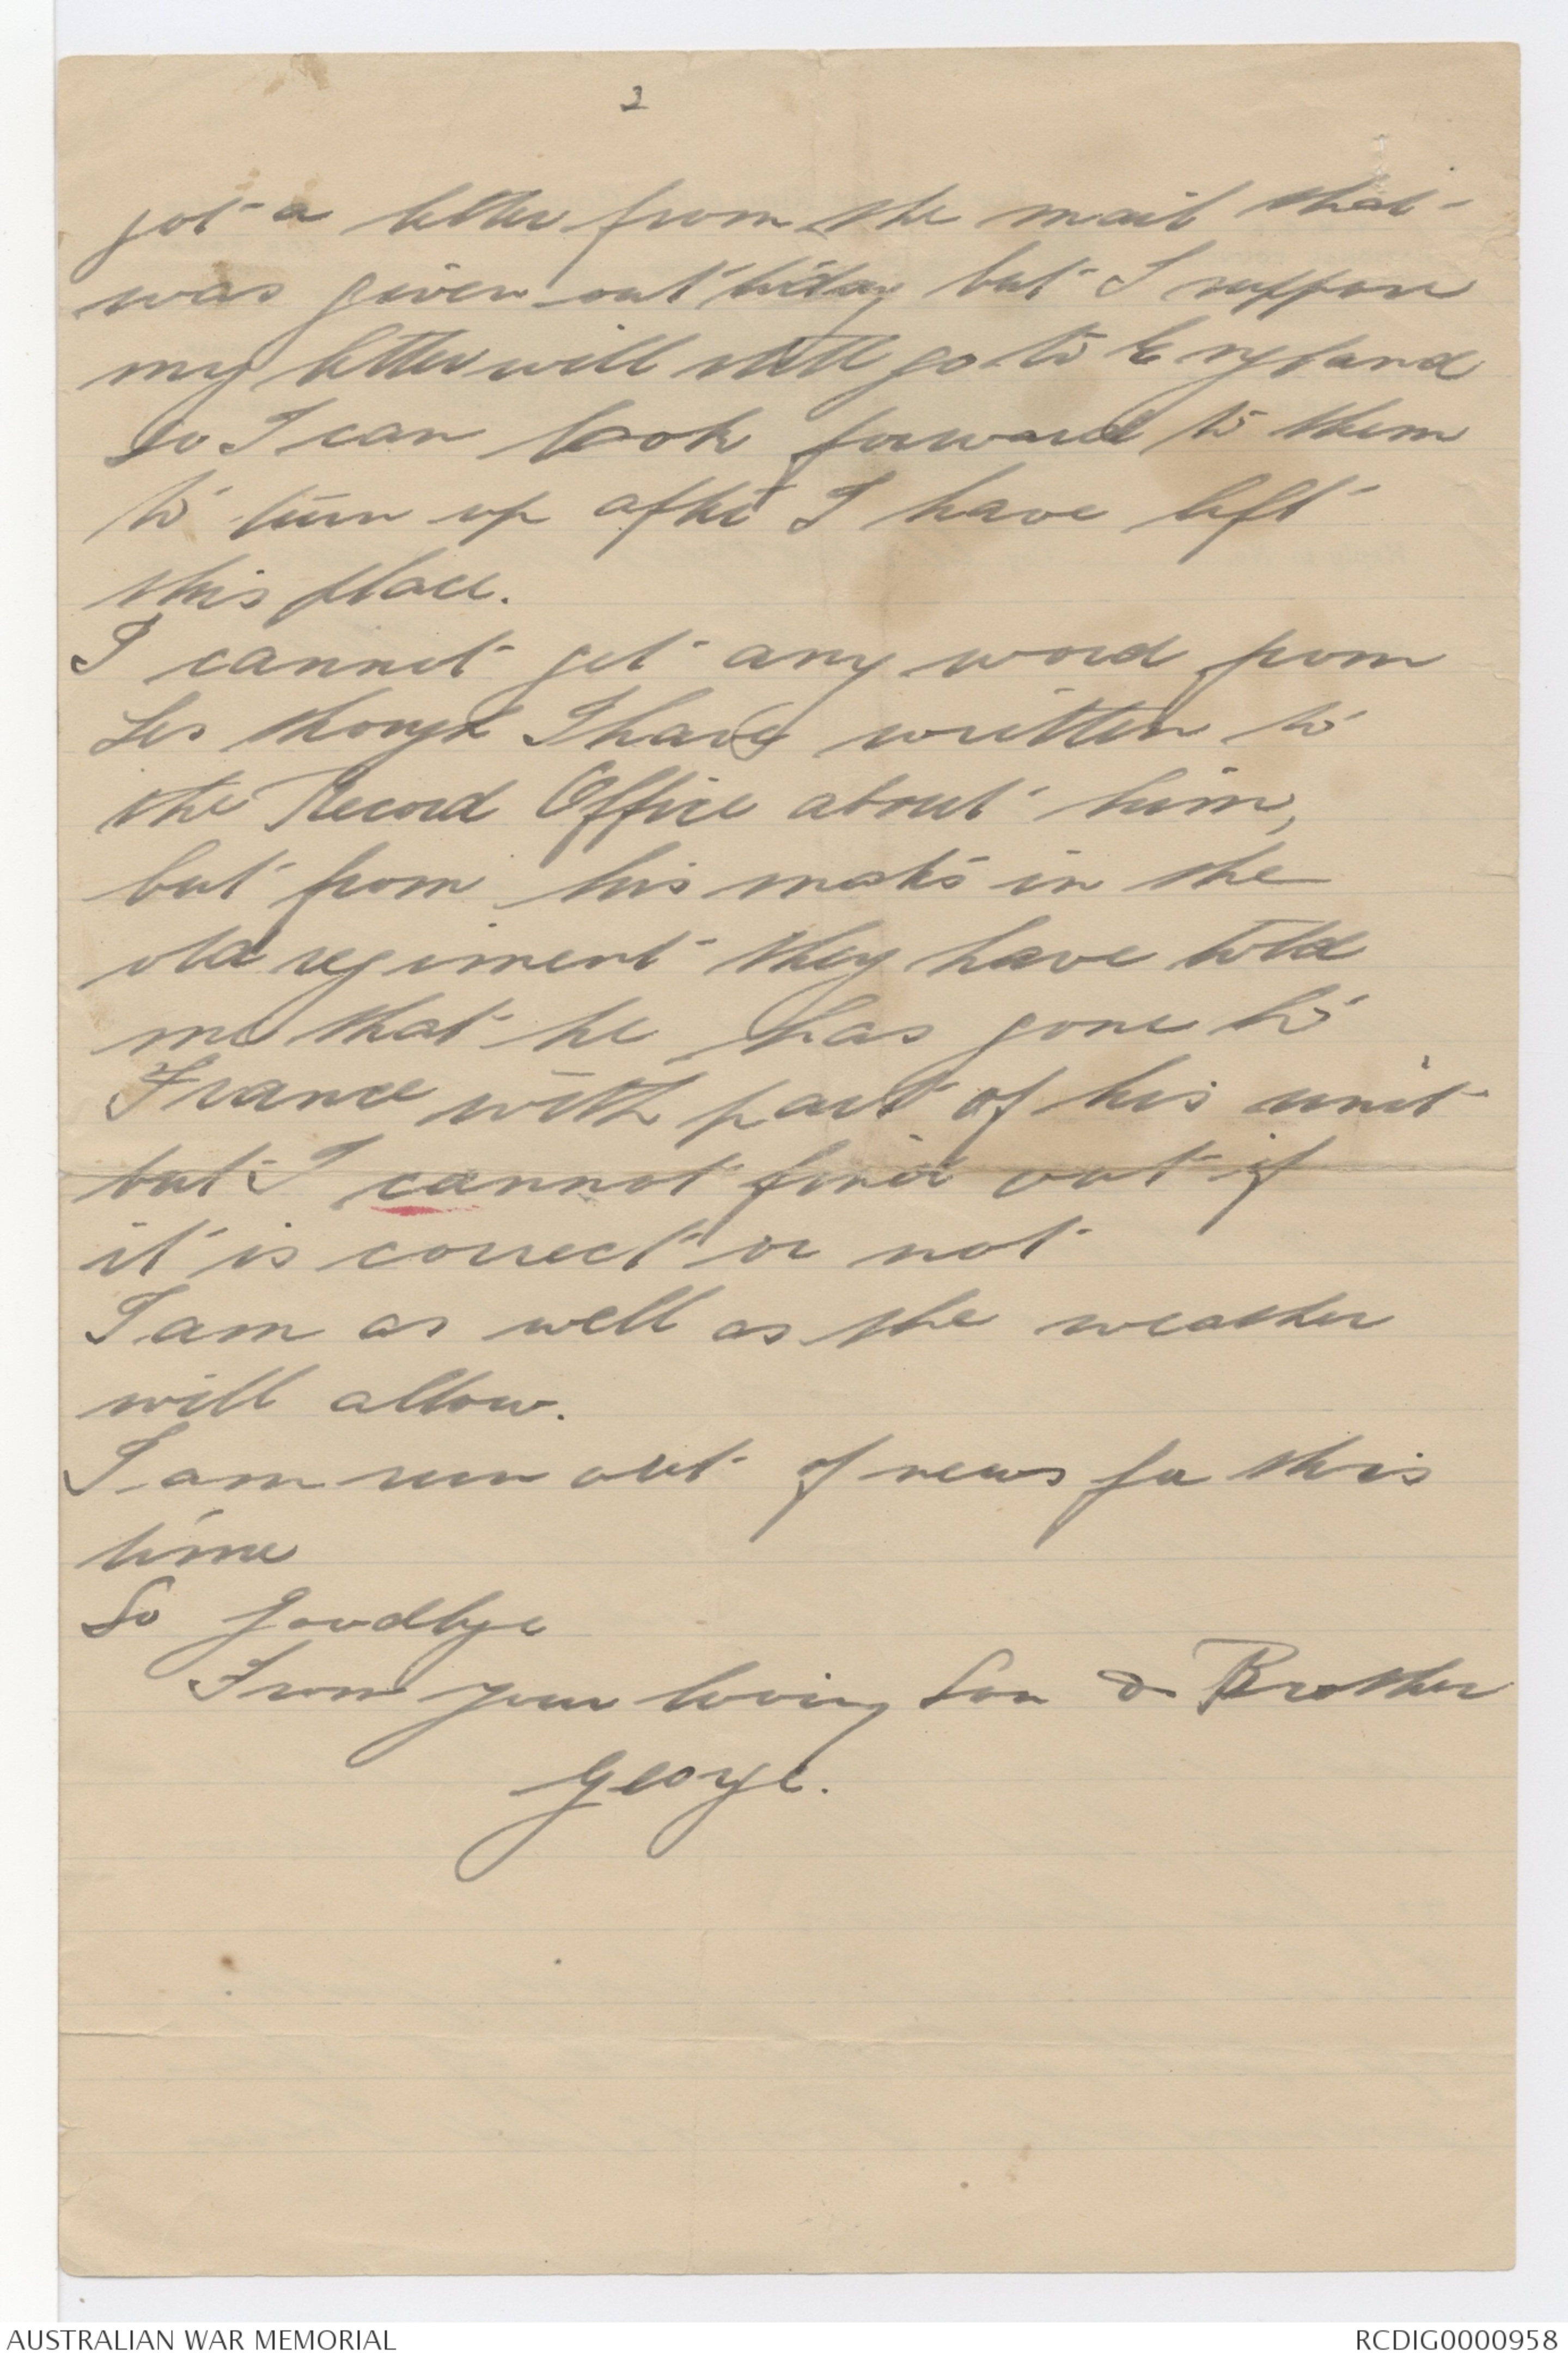 2
got a letter from the mail that
was given out today but I suppose
my letter will still go to England
so I can look forward to them
to turn up after I have left
this place.
I cannot get any word from
Les though I have written to
the Record Office about him,
but from his mates in the
old regiment they have told
me that he has gone to
France with part of his unit
but I cannot find out if
it is correct or not
I am as well as the weather
will allow.
I am run out of news for this
time
So Goodbye
From your loving Son & Brother
George.
AUSTRALIAN WAR MEMORIAL
RCDIG0000958